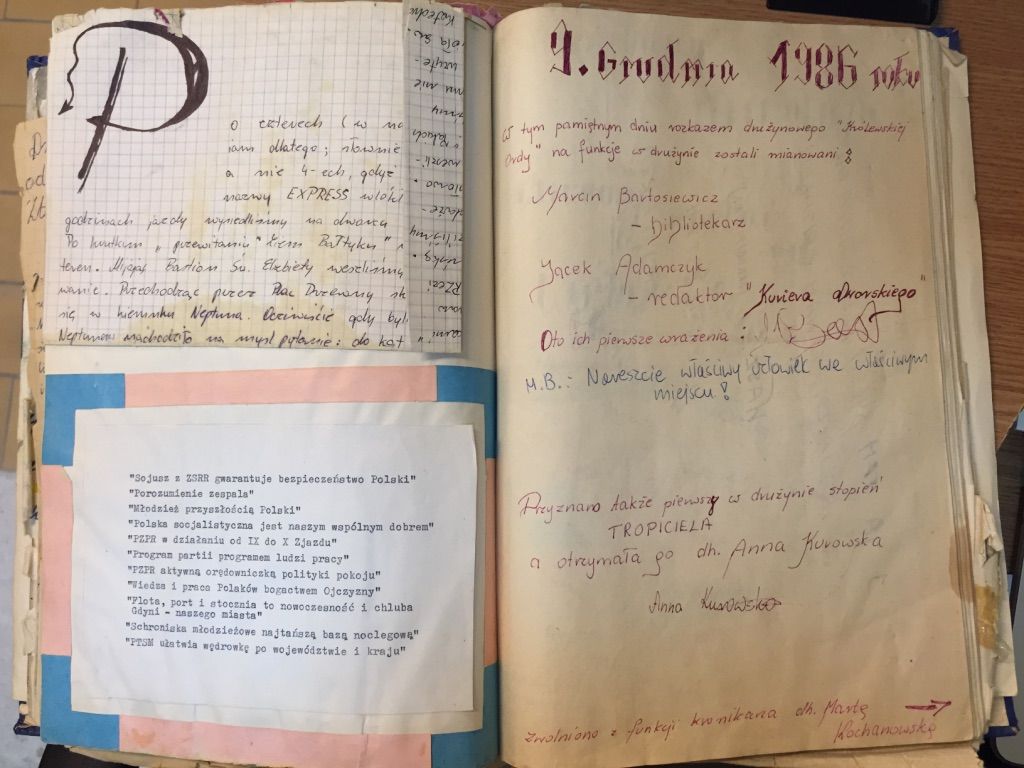 P
o czterech (w na
iam dlatego; słownie
a nie 4-ech, gdyż
nazwy EXPRESS wlókł
godzinach jazdy wysiedliśmy na dworcu
Po krótkim "przewitaniu" łkiem Bałtyku" i
teren. Mijając Bastion Św. Elżbiety weszliśmy
wanie. Przechodząc przez Plac Drzewny sk
się w kierunku Neptuna. Oczywiście gdy byli
Neptunem nachodziło na myśl pytanie: do kąt
"Sojusz z ZSRR gwarantuje bezpieczeństwo Polski"
"Porozumienie zespala"
"Młodzież przyszłością Polski"
"Polska socjalistyczna jest naszym wspólnym dobrem"
"PZPR w działaniu od IX do X Zjazdu"
"Program partii programem ludzi pracy"
"PZPR aktywną orędowniczką polityki pokoju"
"Wiedza i praca Polaków bogactwem Ojczyzny"
"Flota, port i stocznia to nowoczesność i chluba
Gdyni - naszego miasta"
"Schroniska młodzieżowe najtańszą bazą noclegową"
"PTSM ułatwia wędrowkę po województwie i kraju"
9. Grudnia 1986 roku
W tym pamiętnym dniu rozkazem drużynowego "Królewskiej
Ordy" na funkcje w drużynie zostali mianowani:
Marcin Bartosiewicz
- bibliotekarz
Jacek Adamczyk
- redaktor "Kuriera Dworskiego"
Oto ich pierwsze wrażenia:
M.B.: Nareszcie właściwy człowiek we właściwym
miejscu!
Przyznano także pierwszy w drużynie stopień
TROPICIELA
a otrzymała go dh. Anna Kurowska
Anna Kurowska
Zwolniono z funkcji kronikarza dh. Martę
Kochanowską